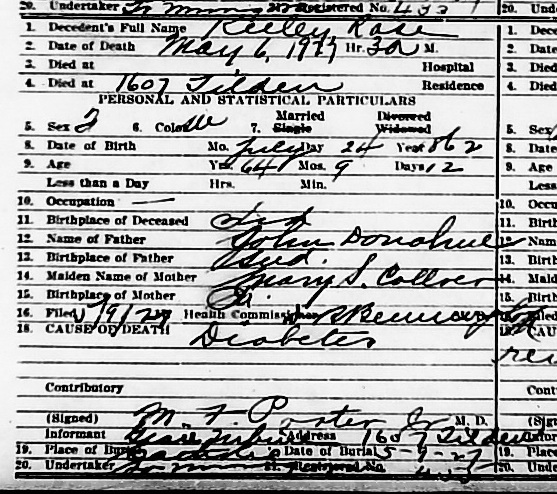 20. Undertaker Registered No. 453
1. Decedent's Full Name Kelley, Rose
2. Date of Death May 6, 1927 Hr. 3a M.
3. Died at Hospital
4. Died at 1607 Tilden Residence
PERSONAL AND STATISTICAL PARTICULARS
5. Sex 6. Color W 7. Married Single Divorced Widowed
8. Date of Birth Mo. July Day 24 Year 1862
9. Age Yrs. 64 Mos. 9 Days 12
Less than a Day Hrs. Min.
10. Occupation —
11. Birthplace of Deceased Ind
12. Name of Father John Donahue
13. Birthplace of Father Ind.
14. Maiden Name of Mother Mary S.
15. Birthplace of Mother
16. Filed 5/9/27 Health Commissioner
18. CAUSE OF DEATH Diabetes
Contributory
(Signed) M. F. Porter Jr M. D.
Informant Address 1607 Tilden
19. Place of Burial Date of Burial 5-9-27
20. Undertaker 21. Registered No.
20. Und
1. Dece
2. Date
3. Died
4. Died
5. Sex
8. Date
9. Age
Less
10. Occu
11. Birth
12. Nam
13. Birth
14. Maid
15. Birth
16. Filed
18. CAU
Cont
(Sign
Infor
19. Place
20. Unde